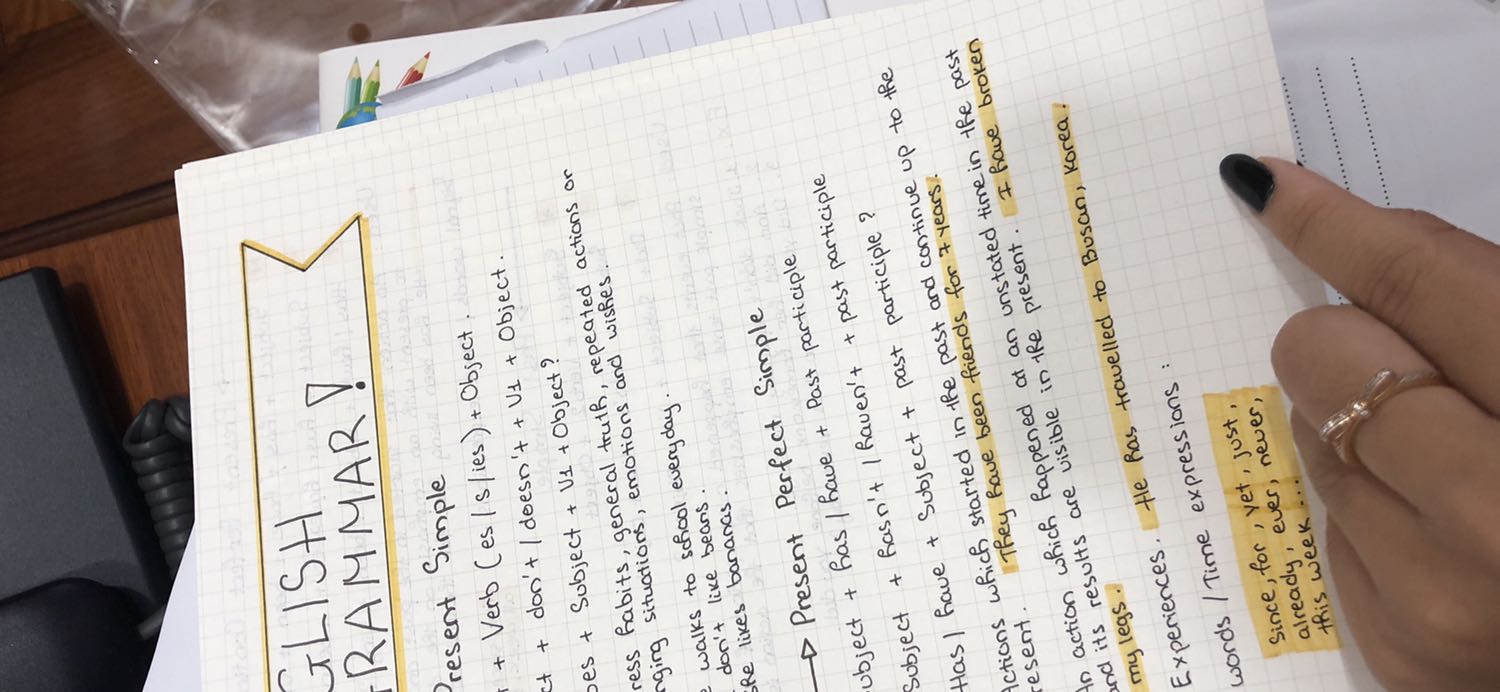 GLISH
RAMMAR!
Present Simple
+ Verb (es/s/ies) + Object.
ct + don't / doesn't + V1 + Object.
oes + Subject + V1 + Object?
ress habits, general truth, repeated actions or
nging situations, emotions and wishes.
e walks to school everyday.
don't like beans.
she likes bananas.
→ Present Perfect Simple
ubject + has / have + Past participle
Subject + hasn't / haven't + past participle
Has / have + Subject + past participle?
Actions which started in the past and continue up to the
resent. They have been friends for 7 years.
An action which happened at an unstated time in the past
and its results are visible in the present. I have broken
my legs.
Experiences. He has travelled to Busan, Korea.
words / Time expressions :
Since, for, yet, just,
already, ever, never,
this week...